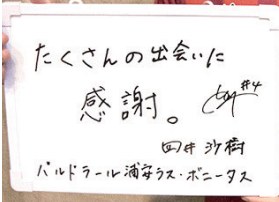 たくさんの出会いに
感謝。
#4
四井沙樹
バルドラール浦安ラス・ボニータス